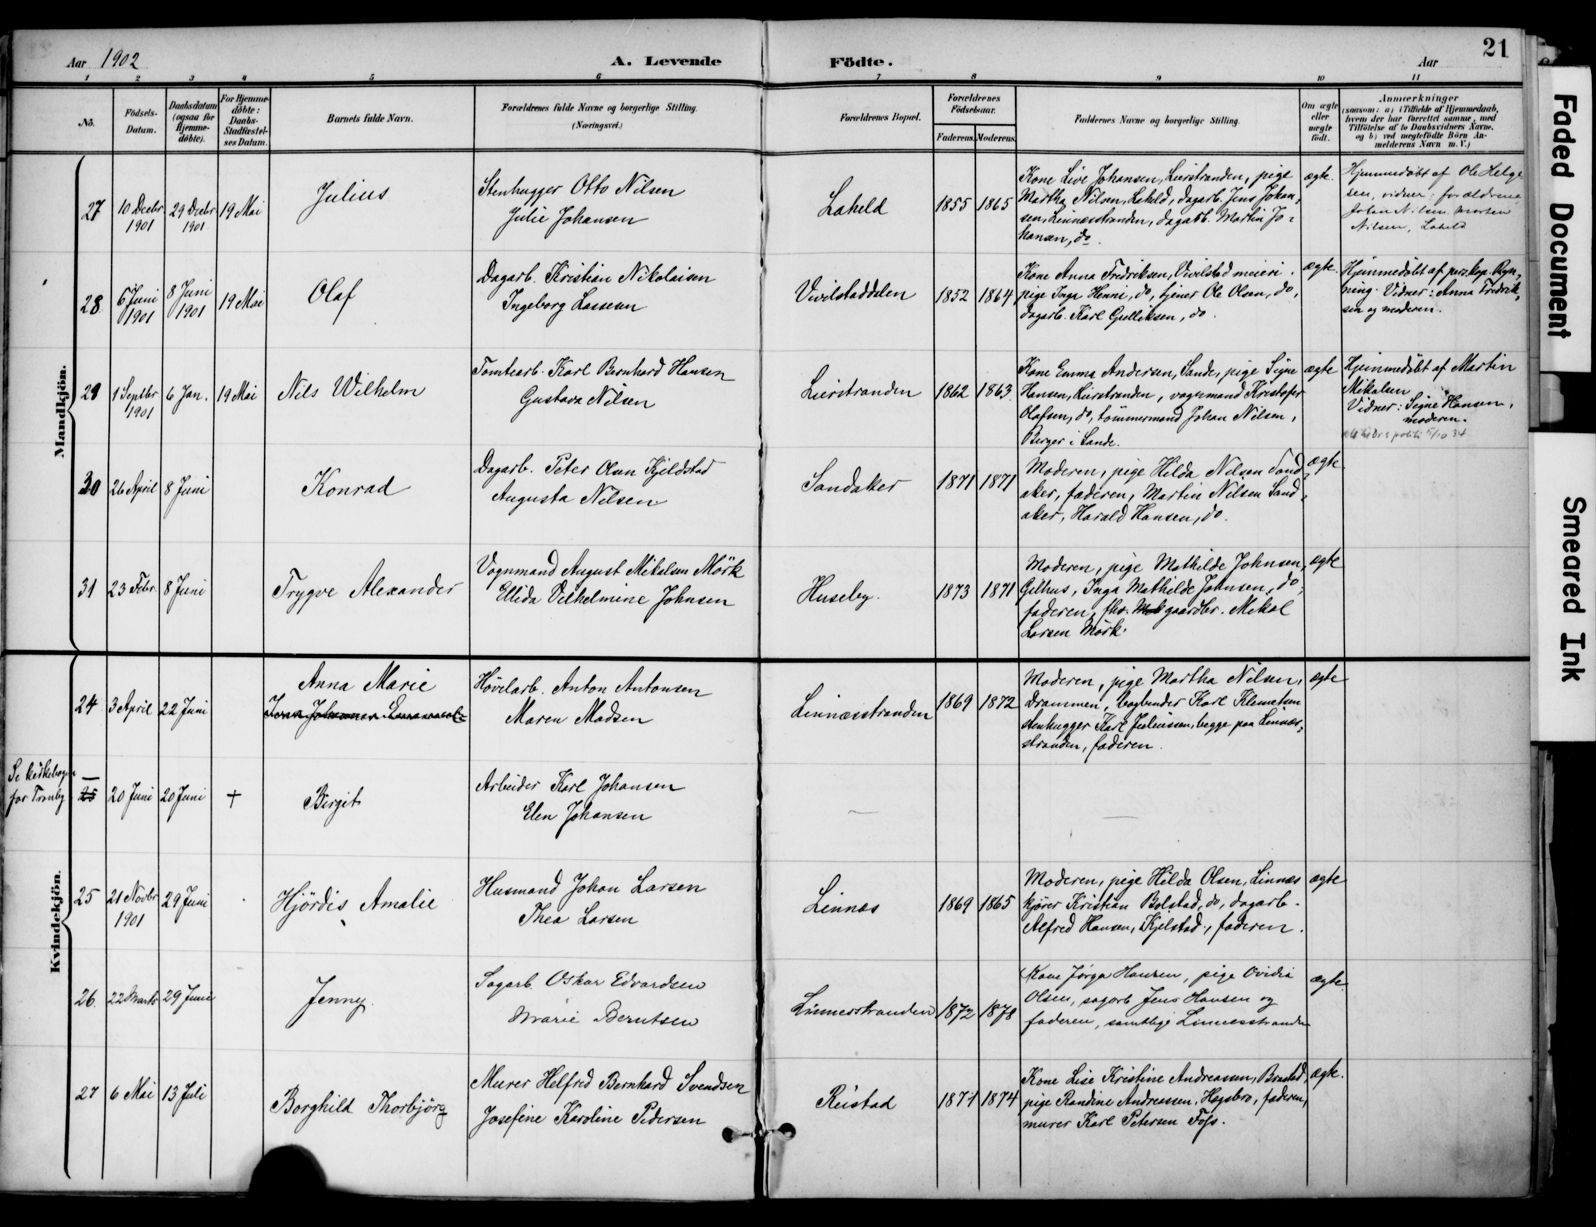 Aar 1902
A. Levende
Födte.
Aar
21
1 2 3 4 5 6 7 8 9 10 11
No.
Födsels-
Datum.
Daabsdatum
(ogsaa for
Hjemme-
döbte).
For Hjemme-
döbte:
Daabs-
Stadfæstel-
ses Datum.
Barnets fulde Navn.
Forældrenes fulde Navne og borgerlige Stilling.
(Næringsvei.)
Forældrenes Bopæl.
Forældrenes
Födselsaar.
Faderens. Moderens.
Faddernes Navne og borgerlige Stilling.
Om ægte
eller
uægte
födt.
Anmærkninger
(saasom: a) i Tilfælde af Hjemmedaab,
hvem der har forrettet samme, med
Tilföielse af to Daabsvidners Navne,
og b) ved uægtefödte Börn An-
melderens Navn m. V.)
Mandkjön.
27
10 Decbr
1901
29 Decbr
1901
19 Mai
Julius
Stenhugger Otto Nilsen
Julie Johansen
Laheld
1855 1865
Kone Live Johansen, Lierstranden, pige
Martha Nilsen, Laheld, dagarb. Jens Johan-
sen, Linnæsstranden, dagarb. Martin Jo-
hansen, do.
ægte.
Hjemmedöbt af Ole Helge
sen, vidner: forældrene
Johan Nilsen
Nilsen, Laheld
28
6 Juni
1901
8 Juni
1901
19 Mai
Olaf
Dagarb. Kristian Nikolaisen
Ingeborg Lassesen
Vivilstaddalen
1852 1864
Kone Anna Fredriksen, Vivilstad meieri.
pige Inga Henni, do, tjener Ole Olsen, do,
dagarb. Karl Gulliksen, do.
ægte.
Hjemmedöbt af pers. kap. Ryn-
ning. Vidner: Anna Fredrik-
sen og moderen.
29
1 Septbr
1901
6 Jan.
19 Mai
Nils Wilhelm
Tomtearb. Karl Bernhard Hansen
Gustava Nilsen
Lierstranden
1862 1863
Kone Emma Andersen, Sande, pige Signe
Hansen, Lierstranden, vognmand Kristofer
Olafsen, do, tömmermand Johan Nilsen,
Berger i Sande.
ægte
Hjemmedöbt af Martin
Mikalsen
Vidner: Signe Hansen,
moderen.
politi 5/10 34
30
26 April
8 Juni
Konrad
Dagarb. Peter Olsen Kjeldstad
Augusta Nilsen
Sandaker
1871 1871
Moderen, pige Hilda Nilsen Sand-
aker, faderen, Martin Nilsen Sand-
aker, Harald Hansen, do.
ægte
31
23 Febr.
8 Juni
Trygve Alexander
Vognmand August Mikalsen Mörk
Ellida Vilhelmine Johnsen
Huseby.
1873 1871
Moderen, pige Mathilde Johnsen,
Gilhus, Inga Mathilde Johnsen, do,
faderen, fhv. gaardbr. Mikal
Larsen Mörk.
ægte
Kvindekjön.
24
3 April
22 Juni
Anna Marie
Høvelarb. Anton Antonsen
Maren Madsen
Linnæsstranden
1869 1872
Moderen, pige Martha Nilsen,
Drammen, bogbinder Karl Klemetsen
stenhugger Karl Juliussen, begge paa Linnæs-
stranden, faderen.
ægte
Se kirkebogen
for Tranby
25
20 Juni
20 Juni
+
Birgit
Arbeider Karl Johansen
Elen Johansen
25
21 Novbr
1901
29 Juni
Hjördis Amalie
Husmand Johan Larsen
Thea Larsen
Linnæs
1869 1865
Moderen, pige Hilda Olsen, Linnæs
kjører Kristian Bolstad, do, dagarb.
Alfred Hansen, Kjelstad, faderen.
ægte
26.
22 Marts
29 Juni
Jenny.
Sagarb. Oskar Edvardsen
Marie Berntsen
Linnesstranden
1872 1878
Kone Jørga Hansen, pige Ovidia
Olsen, sagarb. Jens Hansen og
faderen, samtlige Linnesstranden
ægte.
27
6 Mai
13 Juli
Borghild Thorbjörg
Murer Helfred Bernhard Svendsen
Josefine Karoline Pedersen
Reistad
1871 1874
Kone Lise Kristine Andreassen, Brastad,
pige Randine Andreassen, Hegsbro, faderen,
murer Karl Petersen Foss.
ægte.
Faded Document
Smeared Ink